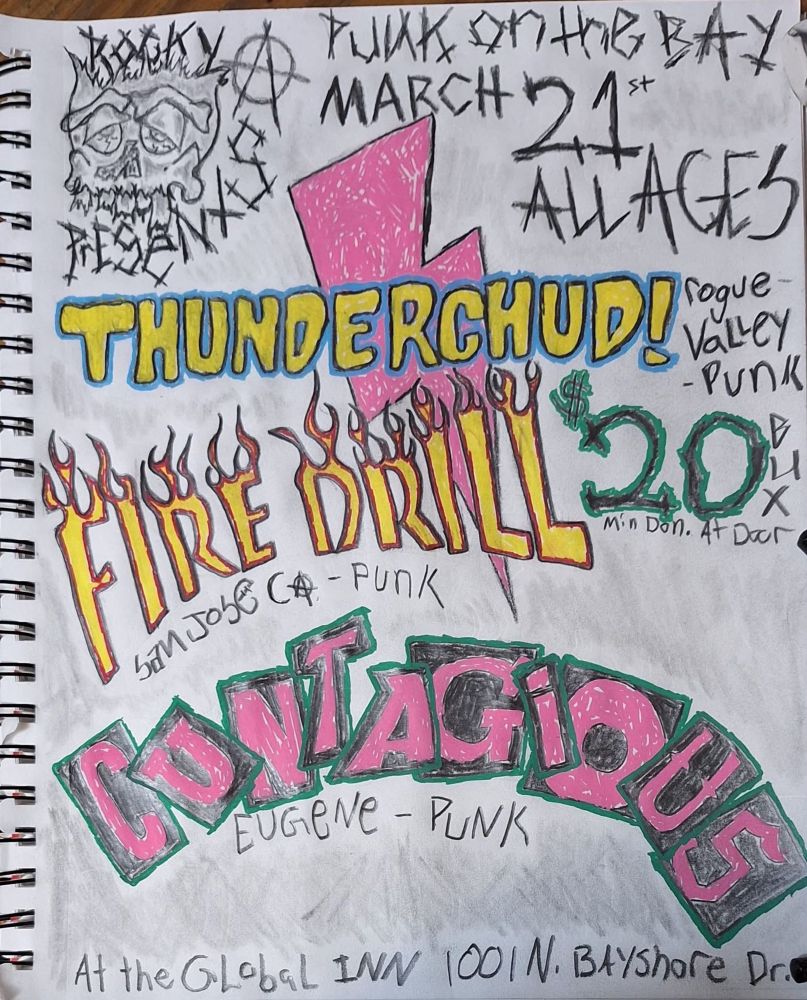 ROCKY A
PRESENTS
PUNK on the BAY
MARCH 21st
ALL AGES
THUNDERCHUD!
rogue-
VaLLEY
-PUNK
FIRE DRILL
$20 BUX
Min Don. At Door
SAN JOSE CA. - PUNK
CONTAGiOUS
EUGENE - PUNK
At the GLobaL INN 1001 N. BAYshore Dr.